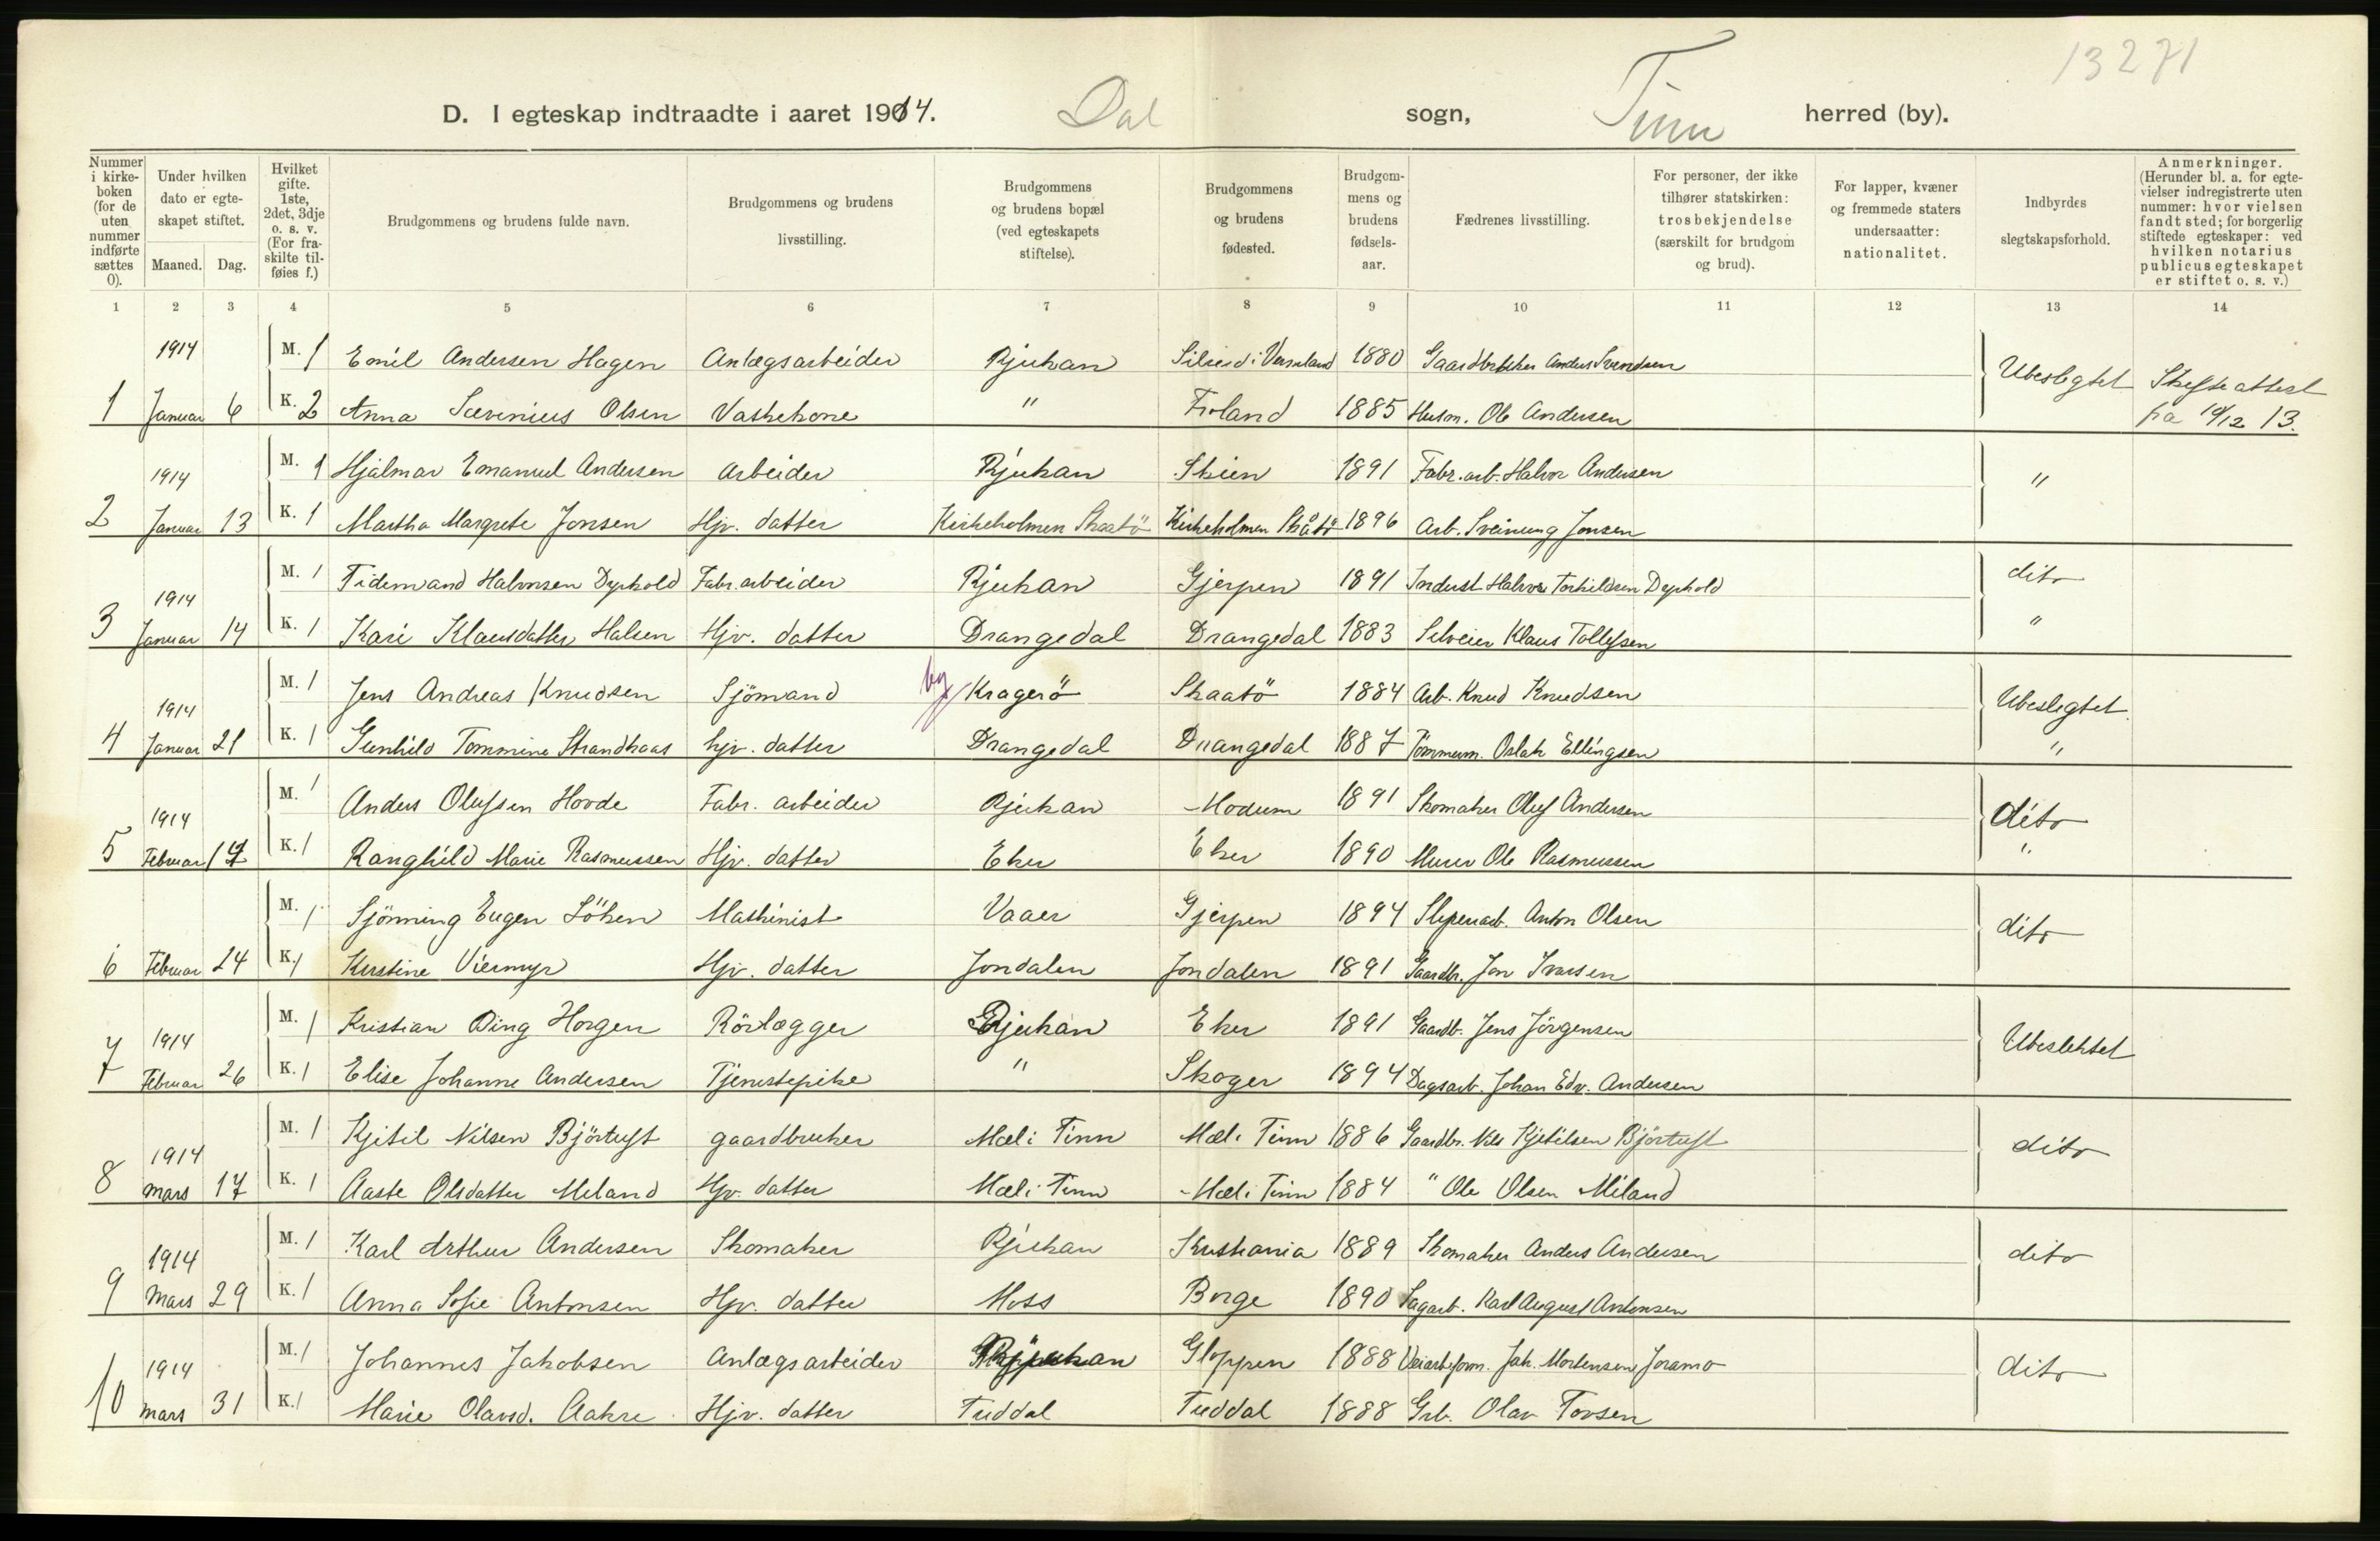 13271
D. I egteskap indtraadte i aaret 1914. Dal sogn, Tinn herred (by).
Nummer i kirke-boken (for de uten nummer indførte sættes 0).
Under hvilken dato er egte-skapet stiftet.
Maaned. Dag.
Hvilket gifte. 1ste, 2det, 3dje o. s. v. (For fra-skilte til-føies f.)
Brudgommens og brudens fulde navn.
Brudgommens og brudens livsstilling.
Brudgommens og brudens bopæl (ved egteskapets stiftelse).
Brudgommens og brudens fødested.
Brudgom-mens og brudens fødsels-aar.
Fædrenes livsstilling.
For personer, der ikke tilhører statskirken: trosbekjendelse (særskilt for brudgom og brud).
For lapper, kvæner og fremmede staters undersaatter: nationalitet.
Indbyrdes slegtskapsforhold.
Anmerkninger. (Herunder bl. a. for egte-vielser indregistrerte uten nummer: hvor vielsen fandt sted; for borgerlig stiftede egteskaper: ved hvilken notarius publicus egteskapet er stiftet o. s. v.)
1 2 3 4 5 6 7 8 9 10 11 12 13 14
1914 M. 1 Emil Andersen Hagen Anlægsarbeider Rjukan i Vermland 1880 Gaardbruker Anders Svendsen Ubeslegtet Skifteattest
1 Januar 6 K. 2 Anna Sævenius Olsen Vaskekone " Froland 1885 Husm. Ole Andersen fra 19/12 13.
1914 M. 1 Hjalmar Emanuel Andersen Arbeider Rjukan Skien 1891 Fabr. arb. Halvor Andersen "
2 Januar 13 K. 1 Martha Margrete Jonsen Hjv. datter Kirkeholmen Skaatö Kirkeholmen Skåtö 1896 Arb. Sveinung Jonsen
1914 M. 1 Tidemand Halvorsen Dyrkold Fabr. arbeider Rjukan Gjerpen 1891 Inderst Halvor Torkildsen Dyrkold dito
3 Januar 14 K. 1 Kari Klausdatter Halsen Hjv. datter Drangedal Drangedal 1883 Selveier Klaus Tollefsen "
1914 M. 1 Jens Andreas Knudsen Sjömand by Kragerö Skaatö 1884 Arb. Knud Knudsen Ubeslegtet
4 Januar 21 K. 1 Gunhild Tommine Strandhaas hjv. datter Drangedal Drangedal 1887 Tömmerm. Oslak Ellingsen "
1914 M. 1 Anders Olufsen Hovde Fabr. arbeider Rjukan Modum 1891 Skomaker Oluf Andersen dito
5 Februar 17 K. 1 Ranghild Marie Rasmussen Hjv. datter Eker Eker 1890 Murer Ole Rasmussen "
M. 1 Sjönning Eugen Löken Maskinist Vaaer Gjerpen 1894 Anton Olsen dito
6 Februar 24 K. 1 Kirstine Viermyr Hjv. datter Jondalen Jondalen 1891 Gaardbr. Jon Ivarsen
1914 M. 1 Kristian Ding Horgen Rörlægger Rjukan Eker 1891 Gaardb. Jens Jörgensen Ubeslektet
7 Februar 26 K. 1 Elise Johanne Andersen Tjenestepike " Skoger 1894 Dagsarb. Johan Edv. Andersen
1914 M. 1 Kjitil Nilsen Björtuft gaardbruker Mæl i Tinn Mæl i Tinn 1886 Gaardbr. Nils Kjetilsen Björtuft dito
8 Mars 17 K. 1 Aaste Olsdatter Meland Hjv. datter Mæl i Tinn Mæl i Tinn 1884 " Ole Olsen Miland
1914 M. 1 Karl Arthur Andersen Skomaker Rjukan Kristiania 1889 Skomaker Anders Andersen dito
9 Mars 29 K. 1 Anna Sofie Antonsen Hjv. datter Moss Borge 1890 Sagarb. Karl August Antonsen
1914 M. 1 Johannes Jakobsen Anlægsarbeider Rjukan Gloppen 1888 Veiarb.form. Jak. Mortensen Joramo dito
10 Mars 31 K. 1 Marie Olavsd. Aakre Hjv. datter Tuddal Tuddal 1888 Grb. Olav Tovsen